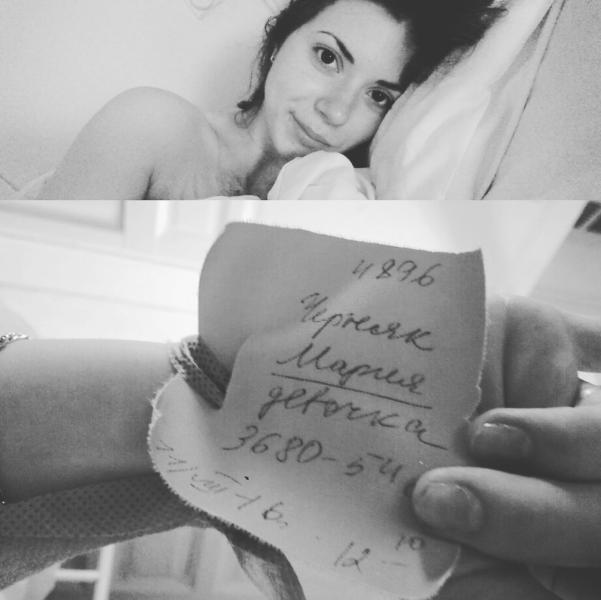 4896
Черняк
Мария
девочка
3680-54
11-III-16г.
12 10